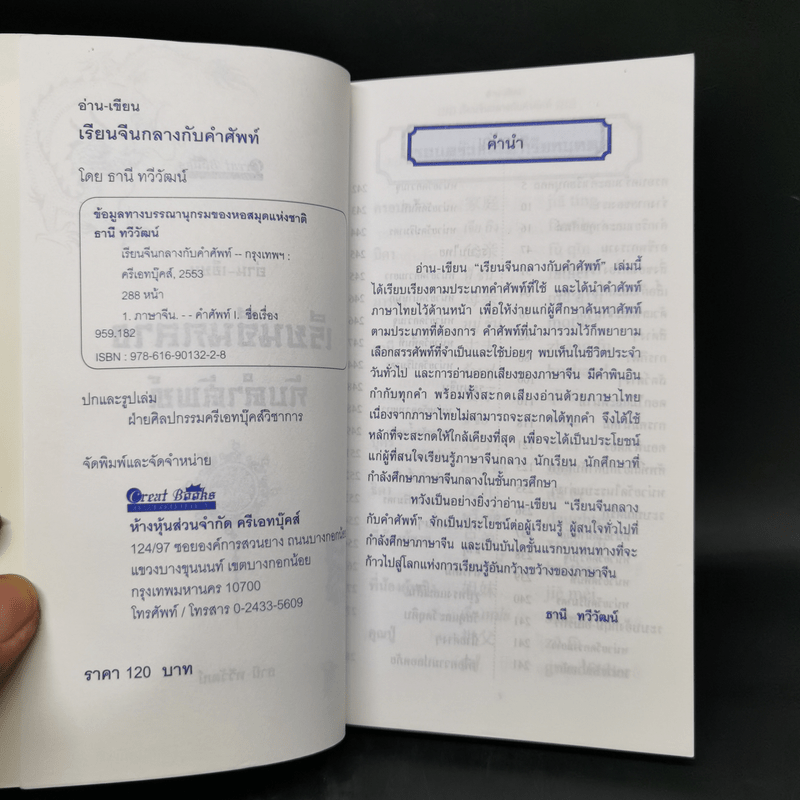 อ่าน-เขียน
เรียนจีนกลางกับคำศัพท์
โดย ธานี ทวีวัฒน์
ข้อมูลทางบรรณานุกรมของหอสมุดแห่งชาติ
ธานี ทวีวัฒน์
เรียนจีนกลางกับคำศัพท์ -- กรุงเทพฯ :
ครีเอทบุ๊คส์, 2553
288 หน้า
1. ภาษาจีน. - - คำศัพท์ I. ชื่อเรื่อง
959.182
ISBN : 978-616-90132-2-8
ปกและรูปเล่ม
ฝ่ายศิลปกรรมครีเอทบุ๊คส์วิชาการ
จัดพิมพ์และจัดจำหน่าย
Creat Books
ห้างหุ้นส่วนจำกัด ครีเอทบุ๊คส์
124/97 ซอยองค์การสวนยาง ถนนบางกอกน้อย
แขวงบางขุนนนท์ เขตบางกอกน้อย
กรุงเทพมหานคร 10700
โทรศัพท์ / โทรสาร 0-2433-5609
ราคา 120 บาท
คำนำ
อ่าน-เขียน “เรียนจีนกลางกับคำศัพท์” เล่มนี้
ได้เรียบเรียงตามประเภทคำศัพท์ที่ใช้ และได้นำคำศัพท์
ภาษาไทยไว้ด้านหน้า เพื่อให้ง่ายแก่ผู้ศึกษาค้นหาศัพท์
ตามประเภทที่ต้องการ คำศัพท์ที่นำมารวมไว้ก็พยายาม
เลือกสรรศัพท์ที่จำเป็นและใช้บ่อยๆ พบเห็นในชีวิตประจำ
วันทั่วไป และการอ่านออกเสียงของภาษาจีน มีคำพินอิน
กำกับทุกคำ พร้อมทั้งสะกดเสียงอ่านด้วยภาษาไทย
เนื่องจากภาษาไทยไม่สามารถจะสะกดได้ทุกคำ จึงได้ใช้
หลักที่จะสะกดให้ใกล้เคียงที่สุด เพื่อจะได้เป็นประโยชน์
แก่ผู้ที่สนใจเรียนรู้ภาษาจีนกลาง นักเรียน นักศึกษาที่
กำลังศึกษาภาษาจีนกลางในชั้นการศึกษา
หวังเป็นอย่างยิ่งว่าอ่าน-เขียน “เรียนจีนกลาง
กับคำศัพท์” จักเป็นประโยชน์ต่อผู้เรียนรู้ ผู้สนใจทั่วไปที่
กำลังศึกษาภาษาจีน และเป็นบันไดขั้นแรกบนหนทางที่จะ
ก้าวไปสู่โลกแห่งการเรียนรู้อันกว้างขวางของภาษาจีน
ธานี ทวีวัฒน์